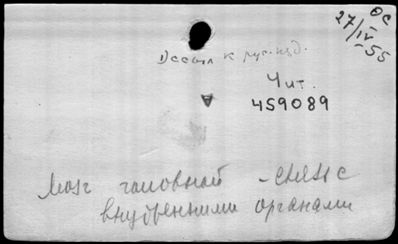 ОС
27/IV-55
к рус. изд.
Чит.
459089
Мозг головной - связь с
внутренними органами